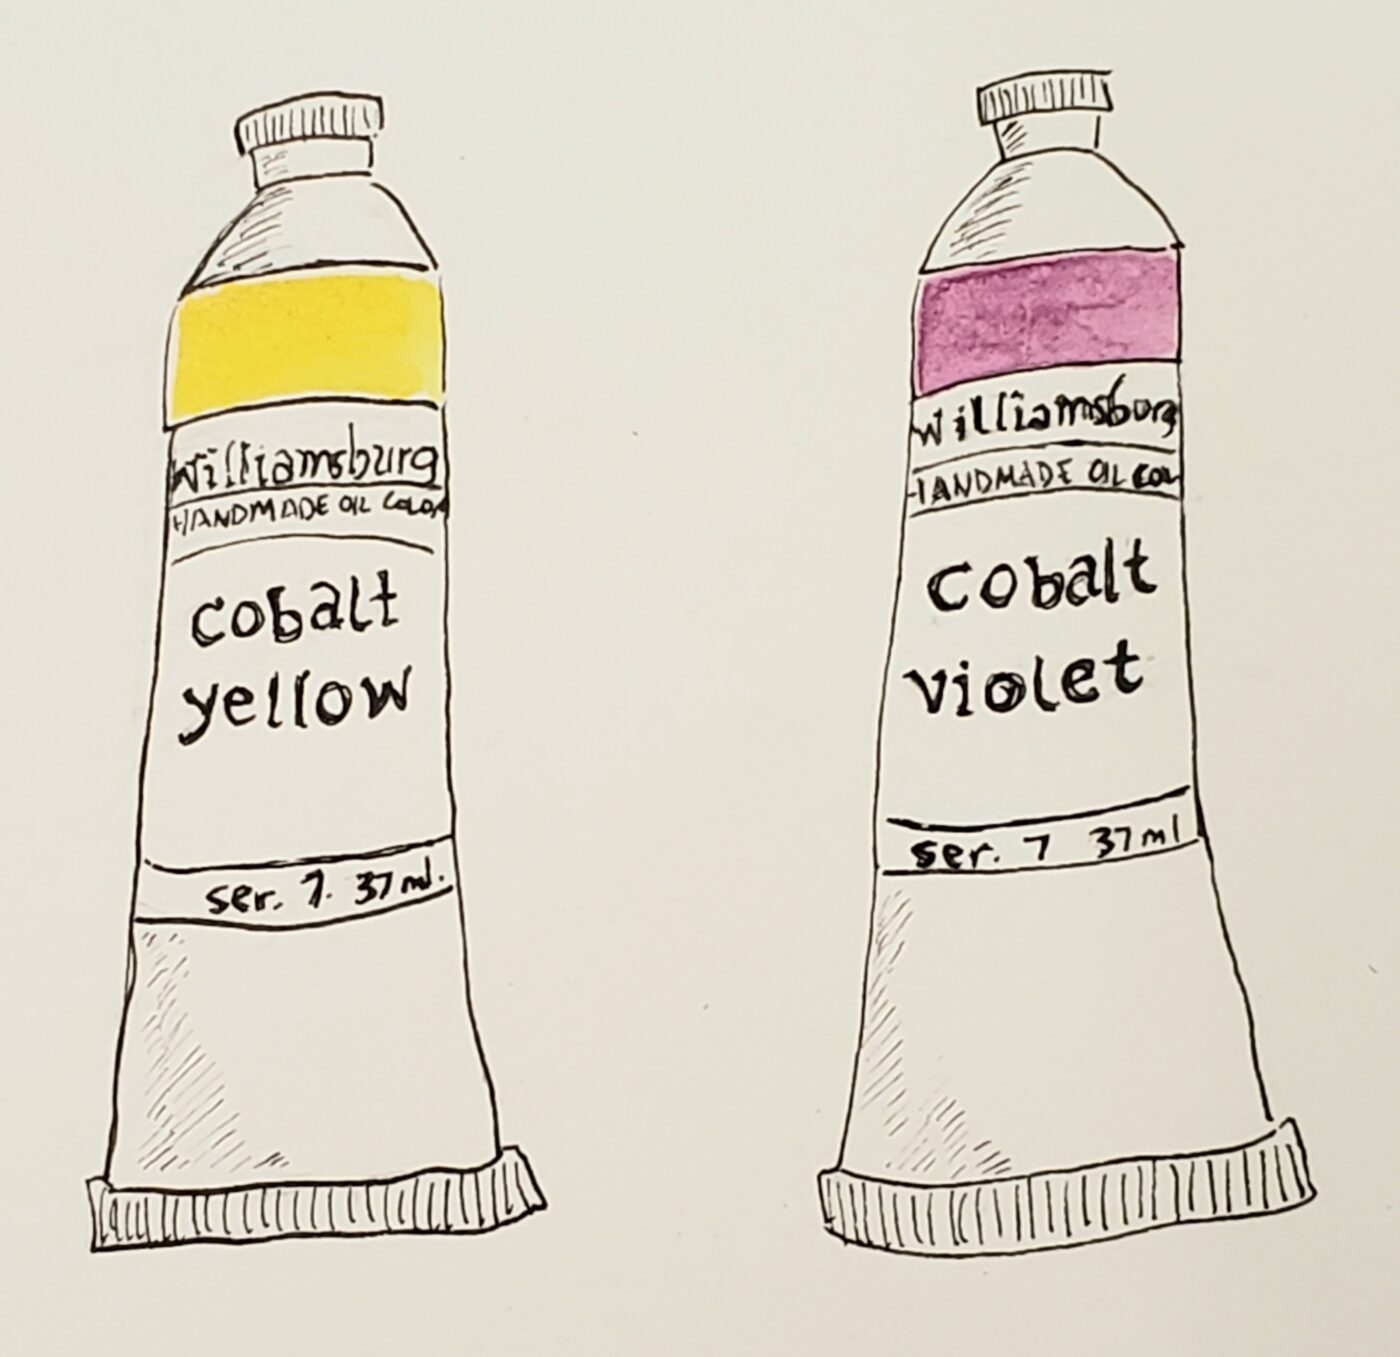 Williamsburg
HANDMADE OIL COLOR
cobalt
yellow
ser. 7. 37 ml.
Williamsburg
HANDMADE OIL COL
cobalt
violet
ser. 7 37 ml